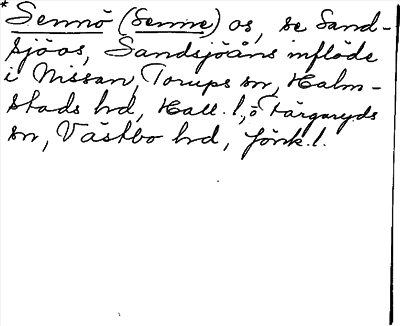 * Sennö (Senne) os, se Sand-
sjöos, Sandsjöåns inflöde
i Nissan, Torups sn, Halm-
stads hd, Hall. l., o Färgaryds
sn, Västbo hd, Jönk. l.